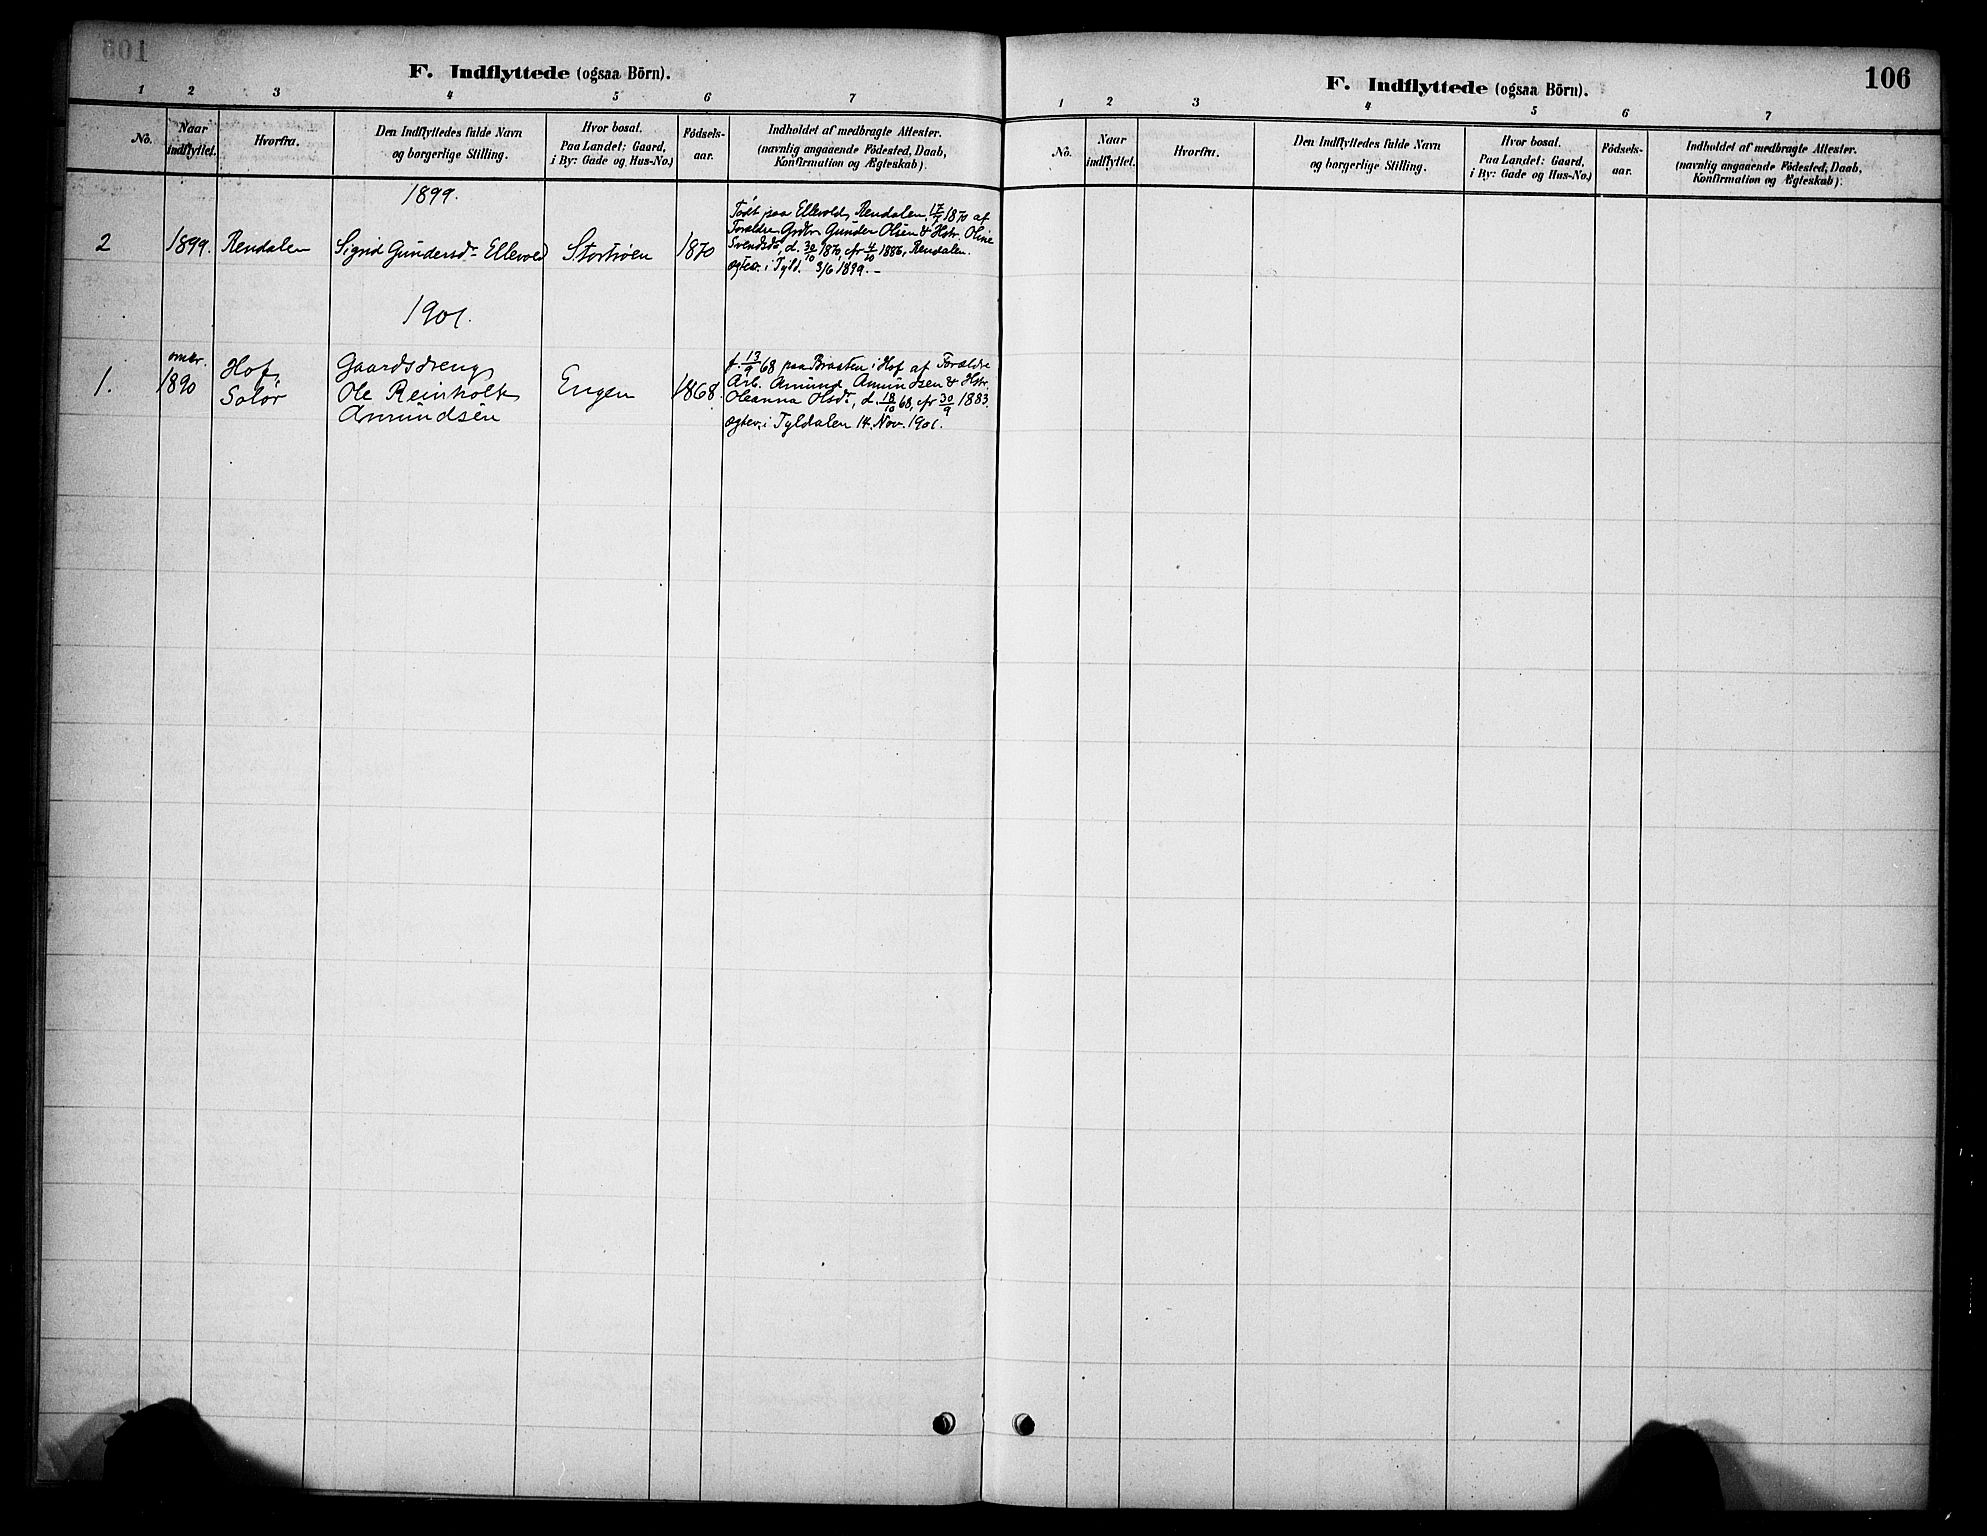 F. Indflyttede (ogsaa Börn).
1 2 3 4 5 6 7
No. Naar indflyttet. Hvorfra. Den Indflyttedes fulde Navn og borgerlige Stilling. Hvor bosat. Paa Landet: Gaard, i By: Gade og Hus-No.) Födsels-aar. Indholdet af medbragte Attester. (navnlig angaaende Födested, Daab, Konfirmation og Ægteskab).
1899.
2 1899. Rendalen Sigrid Gundersdr Ellevold Stortrøen 1870
Født paa Ellevold, Rendalen, 17/7 1870 af
Forældre Grdbr Gunder Olsen & Hstr. Oline
Svendsdr, d. 30/10 1870, cfr 4/10 1886, Rendalen.
ægtev. i Tyld. 3/6 1899. –
1901.
1. omtr. 1890 Hof, Solør
Gaardsdreng
Ole Reinholt
Amundsen
Engen 1868.
f. 13/9 68 paa Braaten i Hof af Forældre
Arb. Amund Amundsen & Hstr.
Oleanna Olsdr, d. 18/10 68, cfr 30/9 1883.
ægtev. i Tyldalen 14. Nov. 1901.
F. Indflyttede (ogsaa Börn).
106
1 2 3 4 5 6 7
No. Naar indflyttet. Hvorfra. Den Indflyttedes fulde Navn og borgerlige Stilling. Hvor bosat. Paa Landet: Gaard, i By: Gade og Hus-No.) Födsels-aar. Indholdet af medbragte Attester. (navnlig angaaende Födested, Daab, Konfirmation og Ægteskab).